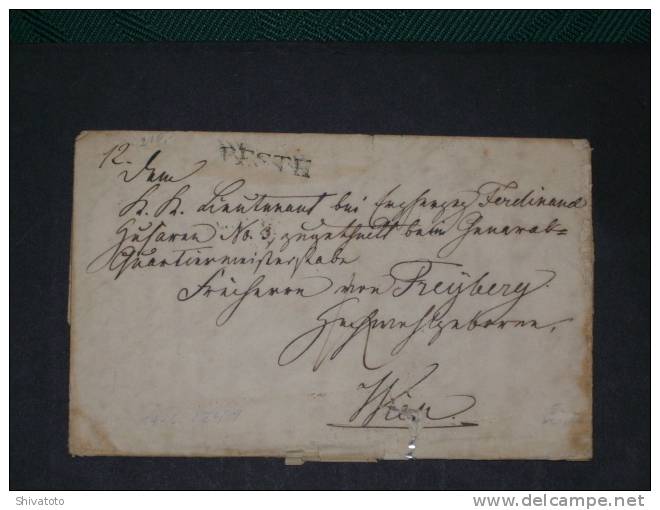 PESTH
12.
Dem
K. K. Lieutenant bei Erzherzog Ferdinand
Husaren No. 3, zugetheilt beim General-
Quartiermeisterstabe
Freiherrn von Freyberg.
Hochwohlgeboren,
Wien.
Shivatoto
delcampe.net